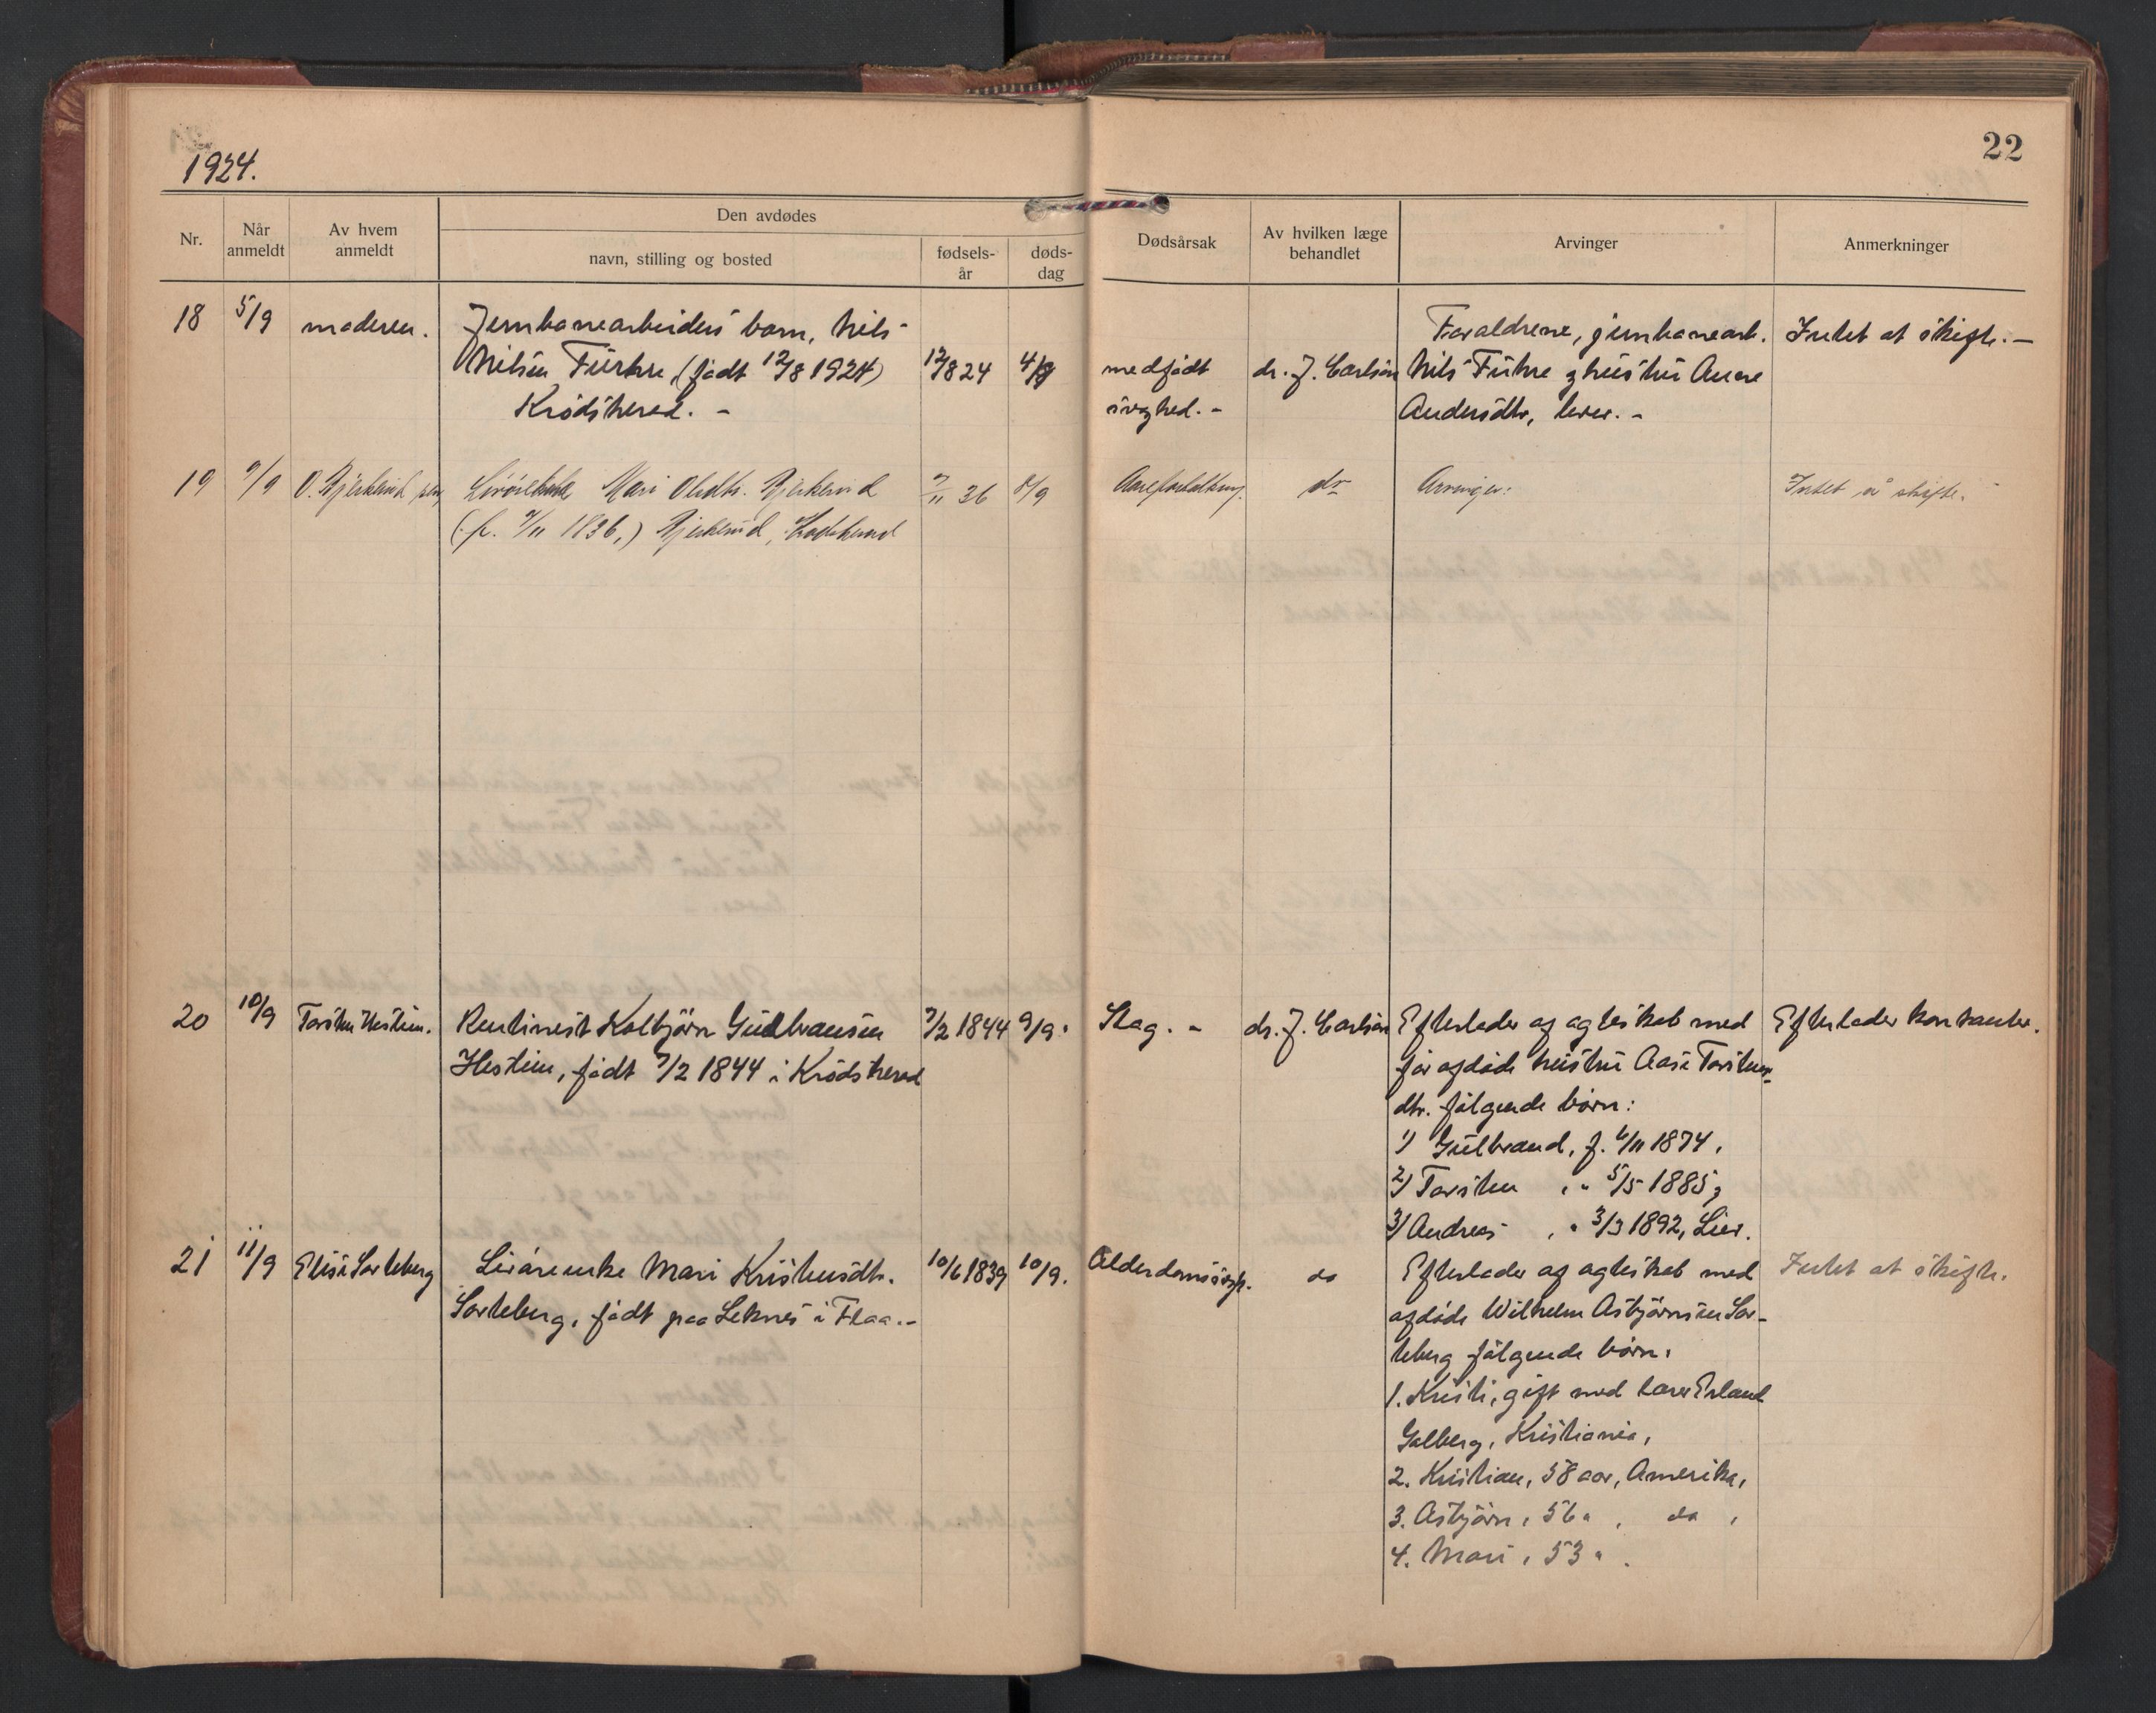 22
1924.
Nr.
Når anmeldt
Av hvem anmeldt
Den avdødes
navn, stilling og bosted
fødsels-år
døds-dag
Dødsårsak
Av hvilken læge behandlet
Arvinger
Anmerkninger
18 5/9 moderen.
Jernbanearbeiders barn, Nils
Nilsen (født 12/8 1924)
Krødsherad. -
12/8 24 4/9
medfødt
svaghed. -
dr. J. Carlsen
Forældrene, jernbanearb.
Nils og hustru Anne
Andersdtr, lever. -
Intet at skifte. -
19 9/9 O. Bjerkerud
Mari Olsdtr. Bjerkerud
(f. 7/11 1836,) Bjerkerud, Krødsherad
7/11 36 8/9
Aareforkalkning.
do
Arvinger:
Intet å skifte.
20 10/9 Torsten Hestien.
Rentinest Kolbjörn Gulbransen
Hestien, født 7/2 1844 i Krødsherad
7/2 1844 9/9.
Slag. -
dr. J. Carlsen
Efterlader af ægteskab med
før afdøde hustru Aase Torstens-
dtr. følgende börn:
1) Gulbrand, f. 6/11 1874.
2) Torsten , " 5/5 1885,
3) Andreas , " 3/3 1892, Lier.
Efterlader kontanter.
21 11/9 Elise Sorteberg
Livörenke Mari Kristensdtr.
Sorteberg, født paa Leknes i Flaa. -
10/6 1839 10/9.
Alderdomssvagh.
do
Efterlader af ægteskab med
afdøde Wilhelm Asbjörnsen Sor-
teberg følgende börn.
1. Kristi, gift med lærer Erland
Golberg, Kristiania,
2. Kristian, 58 aar, Amerika,
3. Asbjörn, 56 " , do ,
4. Mari, 53 " .
Intet at skifte.